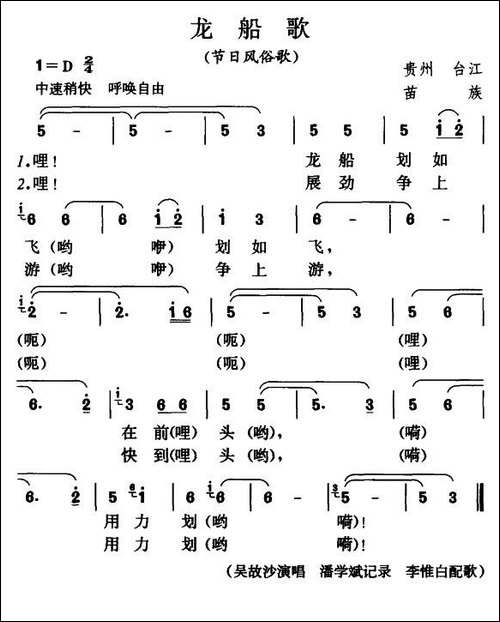 龙船歌
(节日风俗歌)
1=D 2/4
贵州 台江
中速稍快 呼唤自由
苗族
5 - | 5 - | 5 - | 5 3 | 5 5 | 5 i 2 |
1.哩! 龙船 划如
2.哩! 展劲 争上
i 6 6 | 6 i 2 | i 3 | 6 - | 6 - |
飞(哟 咿) 划如 飞,
游(哟 咿) 争上 游,
i 2 - | 2. i 6 | 5 - | 5 - | 5 6 |
(呃) (呃) (哩)
(呃) (呃) (哩)
6. 2 | i 3 6 6 | 5 5 | 5. 3 | 5 6 |
在 前(哩) 头(哟), (嗬)
快 到(哩) 头(哟), (嗬)
6. 2 | 5 6 i | 6 i 6 | 6 - | 3 5 - | 5 - ‖
用力 划(哟 嗬)!
用力 划(哟 嗬)!
(吴故沙演唱 潘学斌记录 李惟白配歌)